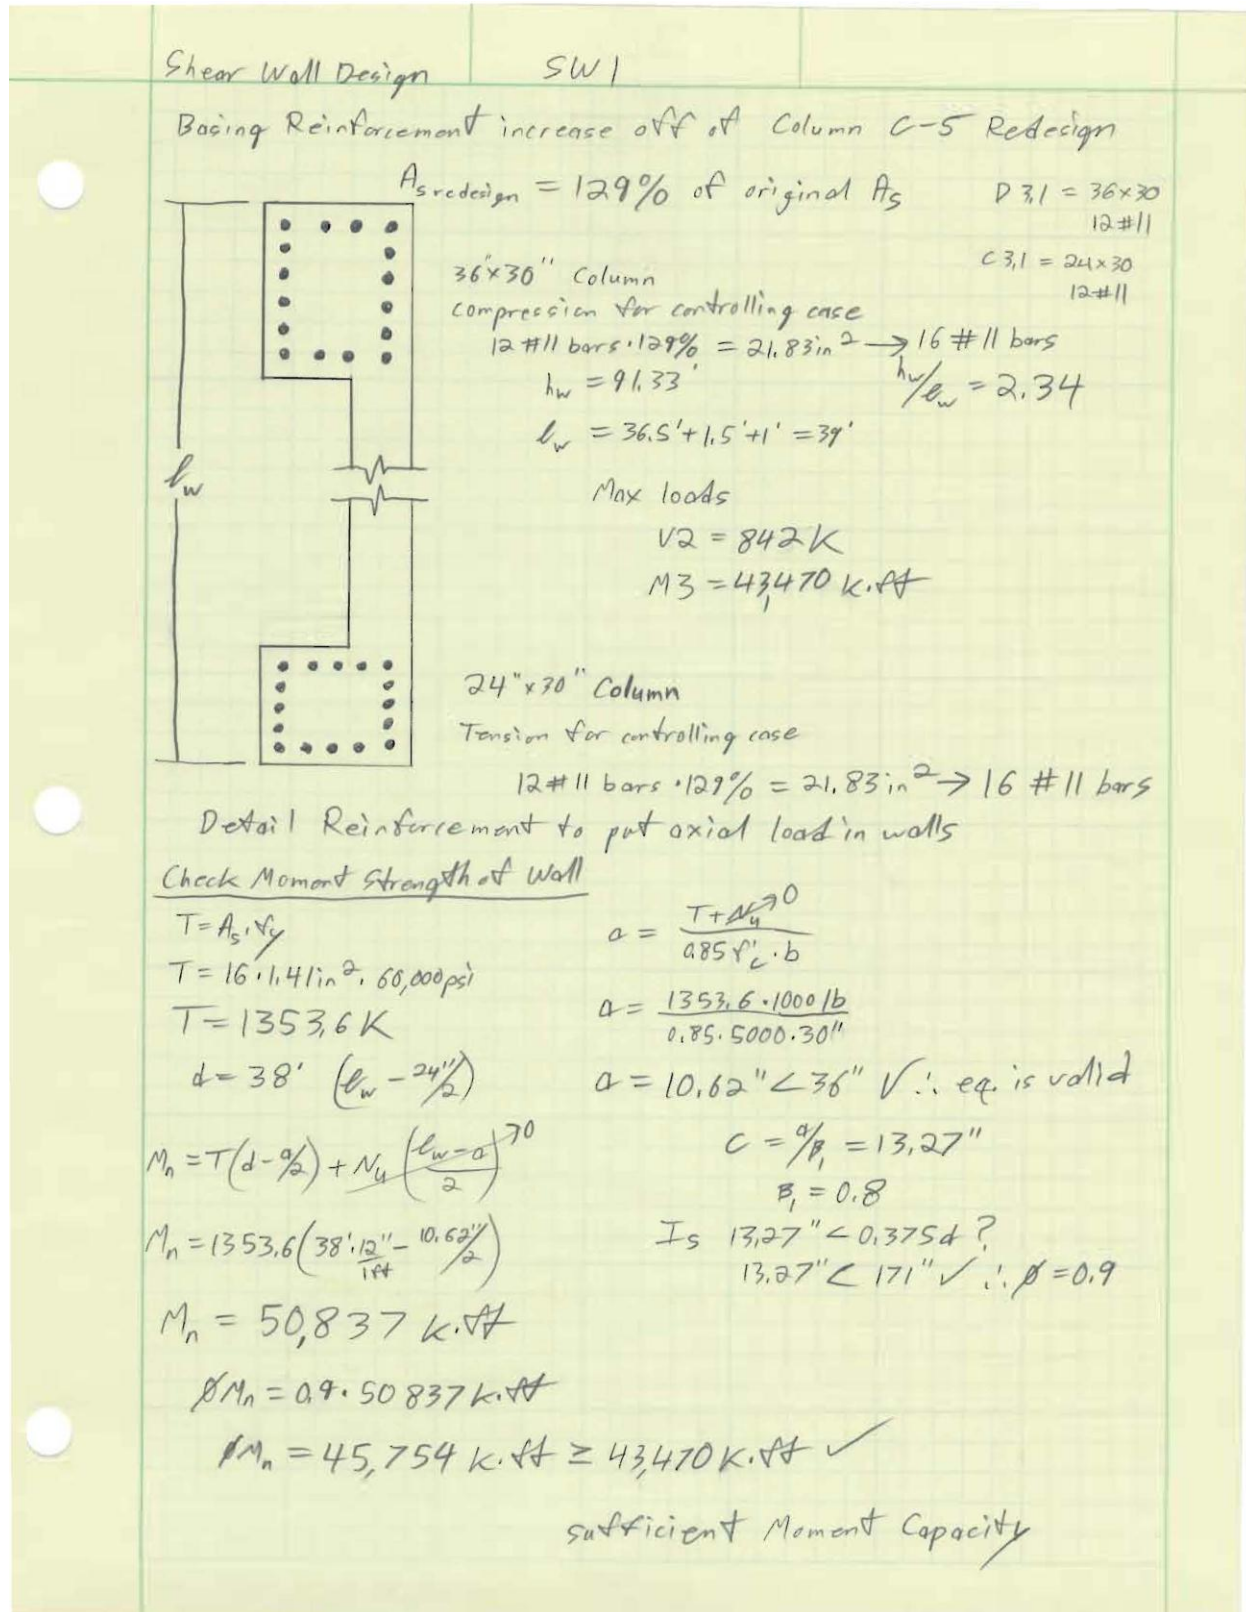 Shear Wall Design SW1
Basing Reinforcement increase off of Column C-5 Redesign
As redesign = 129% of original As
D 3,1 = 36x30
12 #11
C 3,1 = 24x30
12 #11
36"x30" Column
compression for controlling case
12 #11 bars · 129% = 21.83in² → 16 #11 bars
hw = 91.33'
hw/ℓw = 2.34
ℓw = 36.5' + 1.5' + 1' = 39'
ℓw
Max loads
V2 = 842 K
M3 = 43,470 k.ft
24"x30" Column
Tension for controlling case
12 #11 bars · 129% = 21.83in² → 16 #11 bars
Detail Reinforcement to put axial load in walls
Check Moment Strength of Wall
T = As · fy
T = 16 · 1.41in² · 60,000psi
T = 1353.6 K
d = 38' (ℓw - 24"/2)
Mn = T(d - a/2) + Nu (ℓw - a / 2) → 0
Mn = 1353.6 (38' · 12"/1ft - 10.62"/2)
Mn = 50,837 k.ft
ØMn = 0.9 · 50837 k.ft
ØMn = 45,754 k.ft ≥ 43,470 k.ft ✓
a = T + Nu → 0 / 0.85 f'c · b
a = 1353.6 · 1000 lb / 0.85 · 5000 · 30"
a = 10.62" < 36" ✓ ∴ eq. is valid
C = a/β₁ = 13.27"
β₁ = 0.8
Is 13.27" < 0.375d ?
13.27" < 171" ✓ ∴ Ø = 0.9
sufficient Moment Capacity